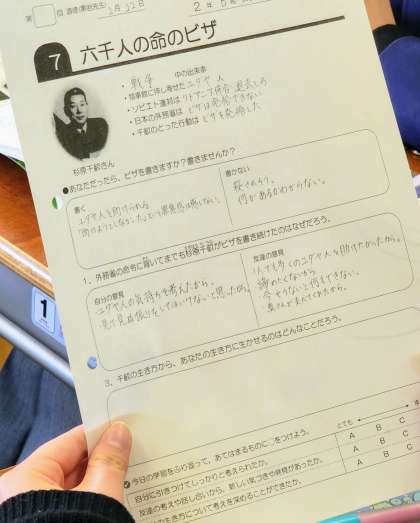 第 回 道徳(
2月22日
2年5
7 六千人の命のビザ
・戦争 中の出来事
・領事館に押し寄せた ユダヤ人
・ソビエト連邦は リトアニア併合 退去しろ
・日本の外務省は ビザは発給できない
・千畝のとった行動は ビザを発給した
杉原千畝さん
●あなただったら、ビザを書きますか?書きませんか?
書く
ユダヤ人を助けられる。
書かない
殺されそう。
何があるかわからない。
1. 外務省の命令に背いてまでも杉原千畝がビザを書き続けたのはなぜだろう。
自分の意見
ユダヤ人の気持ちを考えたから。
見て見ぬ振りをしてはいけないと思ったから。
友達の意見
1人でも多くのユダヤ人を助けたかったから。
諦めたくないから
今やらないと何もできない。
3. 千畝の生き方から、あなたの生き方に生かせるのはどんなことだろう。
1
今日の学習をふり返って、あてはまるものに○をつけよう。
とても
自分に引きつけてしっかりと考えられたか。 A B C
友達の考えや話し合いから、新しい気づきや発見があったか。 A B C
の生き方について考えを深めることができたか。 A B C